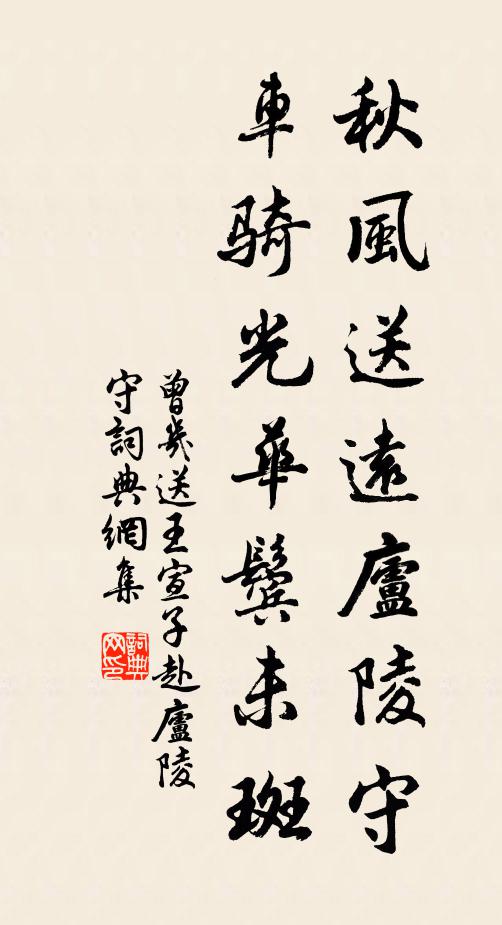 秋風送遠廬陵守
車騎光華鬢未斑
曾幾送王宣子赴廬陵
守詞典網集
詞典
网印